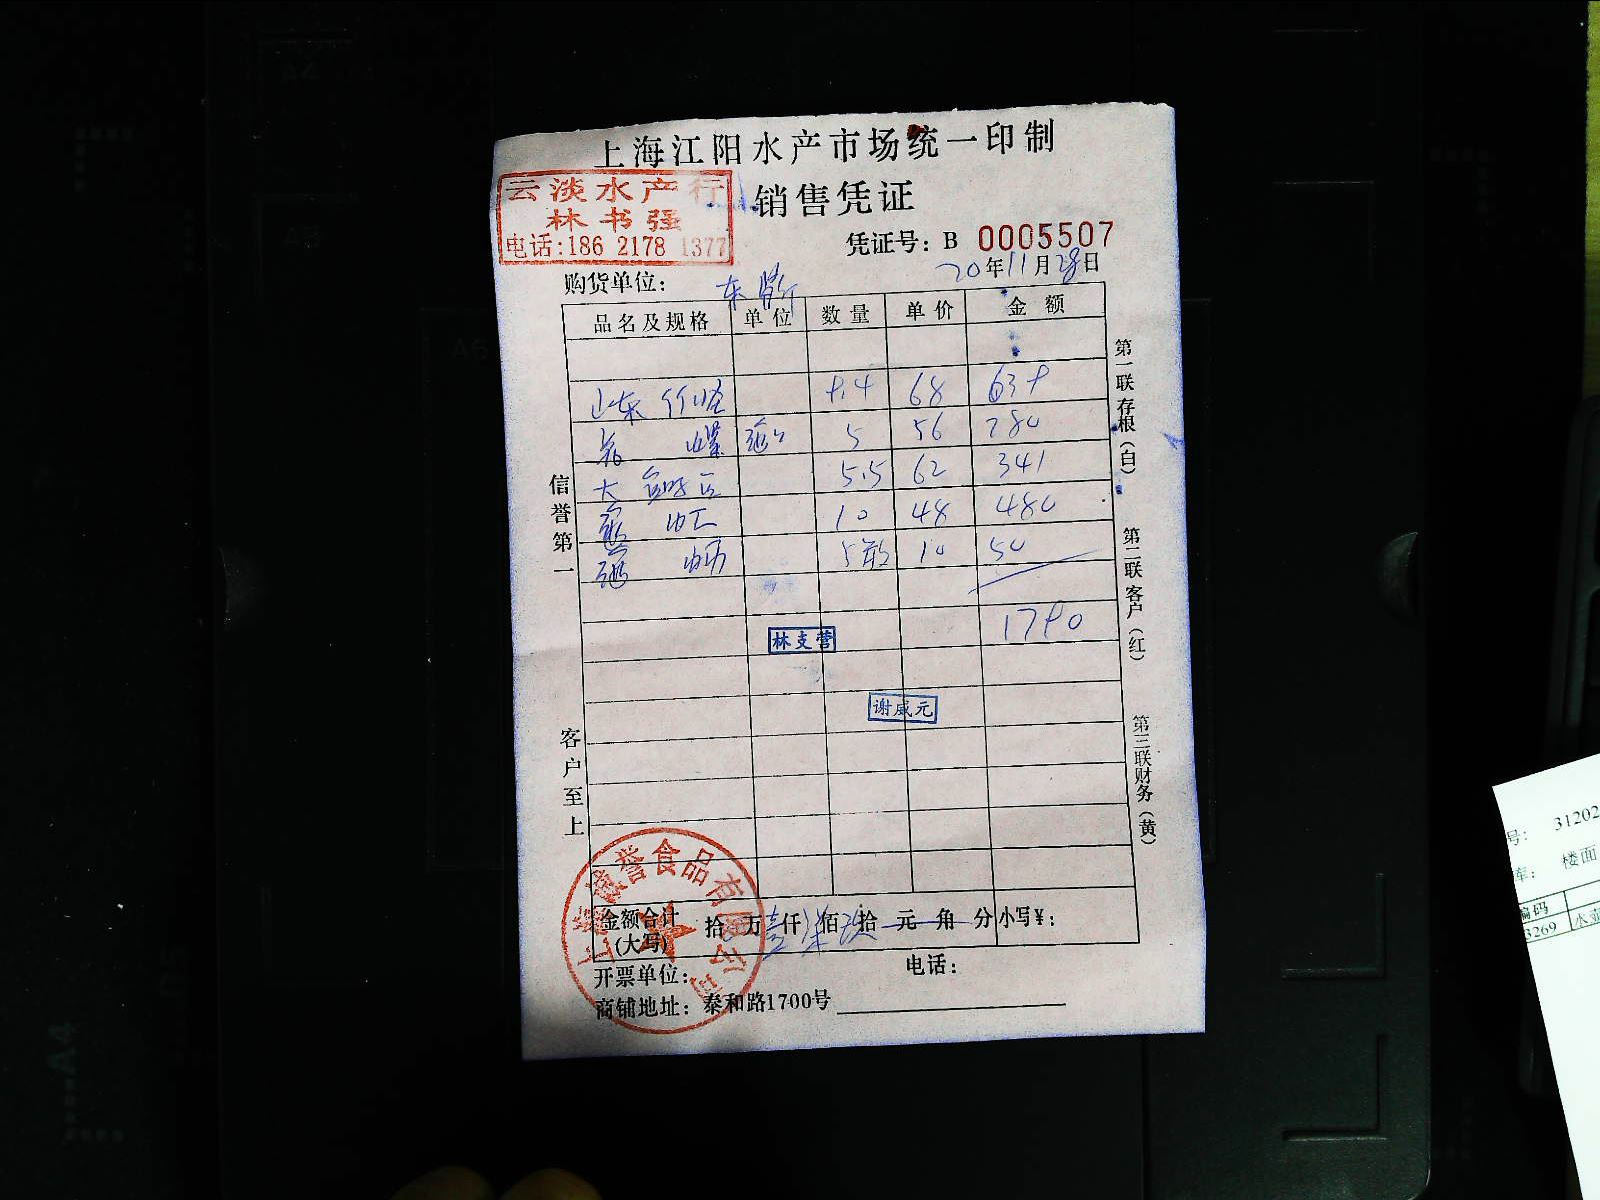 上海江阳水产市场统一印制
云淡水产行
林书强
电话:186 2178 1377
销售凭证
凭证号: B 0005507
20年11月28日
购货单位: 东
品名及规格 单位 数量 单价 金额
山东竹蛏 9.4 68 639
花 5 56 280
大 5.5 62 341
10 48 480
5 10 50
1790
林支营
谢威元
信誉第一
客户至上
第一联存根(白)
第二联客户(红)
第三联财务(黄)
上海 誉食品有限公司
金额合计(大写) 拾 万壹仟柒佰玖拾 元 角 分 小写¥:
开票单位: 电话:
商铺地址: 泰和路1700号
号: 31202
车: 楼面
编码
3269 水